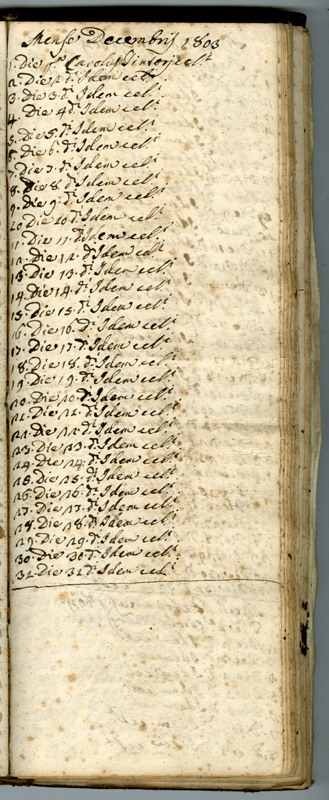 Mense Decembris 1803
1. Die p.ª Carolus celt
2. Die 2 d.ª Idem celt
3. Die 3 d.ª Idem cel.t
4. Die 4 d.ª Idem cel.t
5. Die 5 d.ª Idem cel.t
6. Die 6 d.ª Idem cel.t
7. Die 7 d.ª Idem cel.t
8. Die 8 d.ª Idem cel.t
9. Die 9 d.ª Idem cel.t
10. Die 10 d.ª Idem cel.t
11. Die 11 d.ª Idem cel.t
12. Die 12 d.ª Idem cel.t
13. Die 13 d.ª Idem cel.t
14. Die 14 d.ª Idem cel.t
15. Die 15 d.ª Idem cel.t
16. Die 16 d.ª Idem cel.t
17. Die 17 d.ª Idem cel.t
18. Die 18 d.ª Idem cel.t
19. Die 19 d.ª Idem cel.t
20. Die 20 d.ª Idem cel.t
21. Die 21 d.ª Idem cel.t
22. Die 22 d.ª Idem cel.t
23. Die 23 d.ª Idem cel.t
24. Die 24 d.ª Idem cel.t
25. Die 25 d.ª Idem cel.t
26. Die 26 d.ª Idem cel.t
27. Die 27 d.ª Idem cel.t
28. Die 28 d.ª Idem cel.t
29. Die 29 d.ª Idem cel.t
30. Die 30 d.ª Idem cel.t
31. Die 31 d.ª Idem cel.t